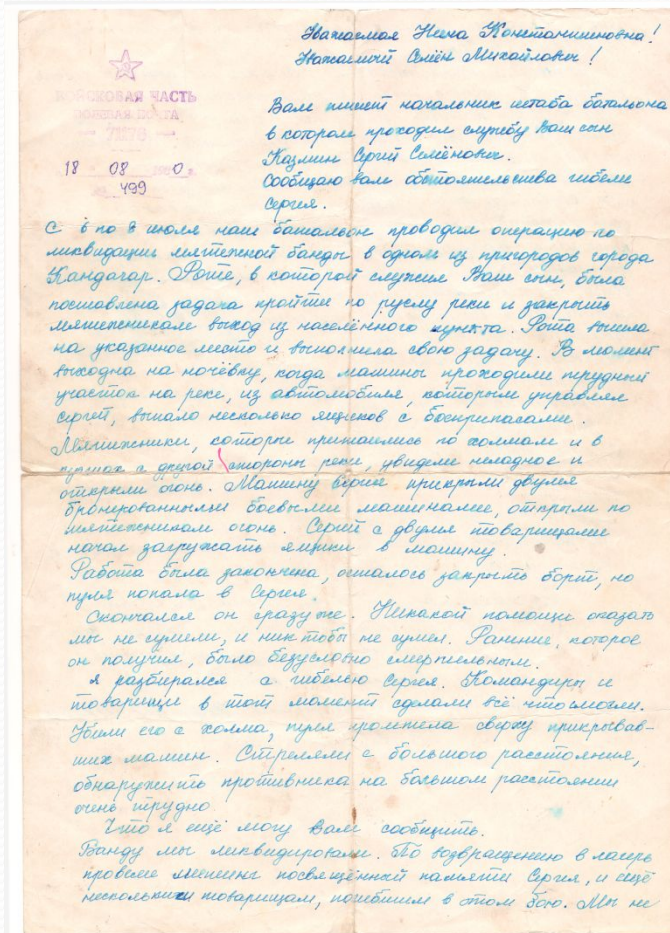 Уважаемая Нина Константиновна!
Уважаемый Семён Михайлович!
ВОЙСКОВАЯ ЧАСТЬ
ПОЛЕВАЯ ПОЧТА
18 08
499
Вам пишет начальник штаба батальона
в котором проходил службу Ваш сын
Казмин Сергей Семёнович.
Сообщаю вам обстоятельства гибели
Сергея.
С 6 по 8 июля наш батальон проводил операцию по
ликвидации мятежной банды в одном из пригородов города
Кандагар. Роте, в которой служил Ваш сын, была
поставлена задача пройти по руслу реки и закрыть
мятежникам выход из населённого пункта. Рота вышла
на указанное место и выполнила свою задачу. В момент
выхода на ночёвку, когда машины проходили трудный
участок на реке, из автомобиля, которым управлял
Сергей, выпало несколько ящиков с боеприпасами.
Мятежники, которые притаились по холмам и в
с другой стороны реки, увидели неладное и
открыли огонь. Машину Сергея прикрыли двумя
бронированными боевыми машинами, открыли по
мятежникам огонь. Сергей с двумя товарищами
начал загружать ящики в машину.
Работа была закончена, осталось закрыть борт, но
пуля попала в Сергея.
Скончался он сразу же. Никакой помощи оказать
мы не сумели, и никтобы не сумел. Ранение, которое
он получил, было безусловно смертельным.
Я разбирался с гибелью Сергея. Командиры и
товарищи в тот момент сделали всё чтосмогли.
Убили его с холма, пуля пролетела сверху прикрывав-
ших машин. Стреляли с большого расстояния,
обнаружить противника на большом расстоянии
очень трудно
Что я ещё могу Вам сообщить.
Банду мы ликвидировали. По возвращению в лагерь
провели митинг посвящённый памяти Сергея, и ещё
нескольким товарищам, погибшим в этом бою. Мы не